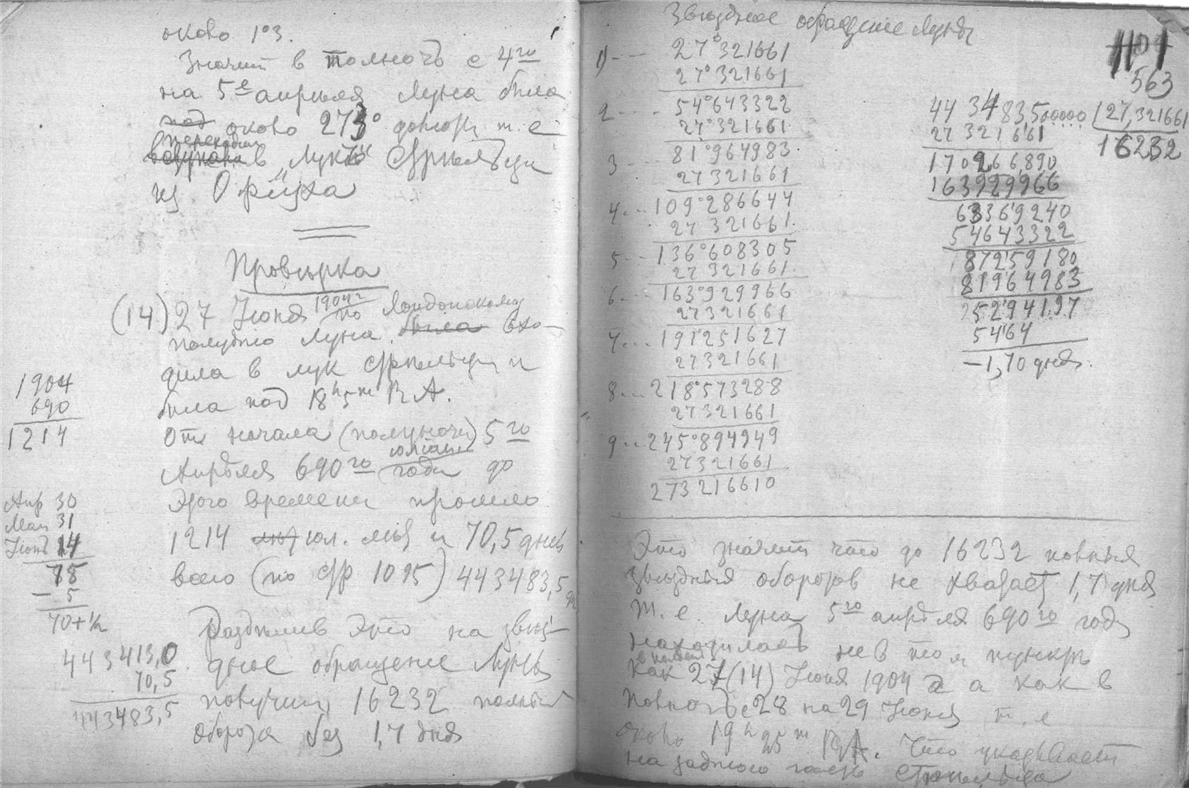 около 1°3.
Значит в полночь с 4го
на 5е апреля Луна была
около 273° долготы т. е
переходила
в Лук Стрельца
из Офiуха
Провѣрка
(14) 27 Iюня 1904 г по Лондонскому
полудню Луна была вхо-
дила в лук стрельца и
была под 18h5m RA.
1904
690
1214
От начала (полуночи) 5го
Апрѣля 690го года до
этого времени прошло
1214 юл. лѣт и 70,5 дней
всего (по стр 1095) 443483,5
Апр 30
Мая 31
Iюня 14
75
– 5
70+½
443413,0
70,5
443483,5
Раздѣлив это на звѣз-
дное обращение Луны
получим 16232 полных
оборота без 1,7 дня
Звѣздное обращение Луны
1) --- 27°321661
27°321661
2 --- 54°643322
27°321661
3 81°964983
27321661
4 ... 109°286644
27321661
5 --- 136°608305
27321661
6 --- 163°929966
27321661
7 ... 191251627
27321661
8 ... 218573288
27321661
9 ... 245°894949
27321661
273216610
563
44348350000 | 27,321661
27321661 16232
170266890
163929966
63369240
54643322
87259180
81964983
5294197
5464
– 1,70 дня.
Это значит что до 16232 полных
звѣздных оборотов не хватает 1,7 дня
т. е. Луна 5го апрѣля 690го года
находилась не в том пункте
как в полдень 27 (14) Iюня 1904 г а как в
полночь с 28 на 29 Iюня т. е
около 19h25m RA. Что указывает
на заднюю часть Стрельца